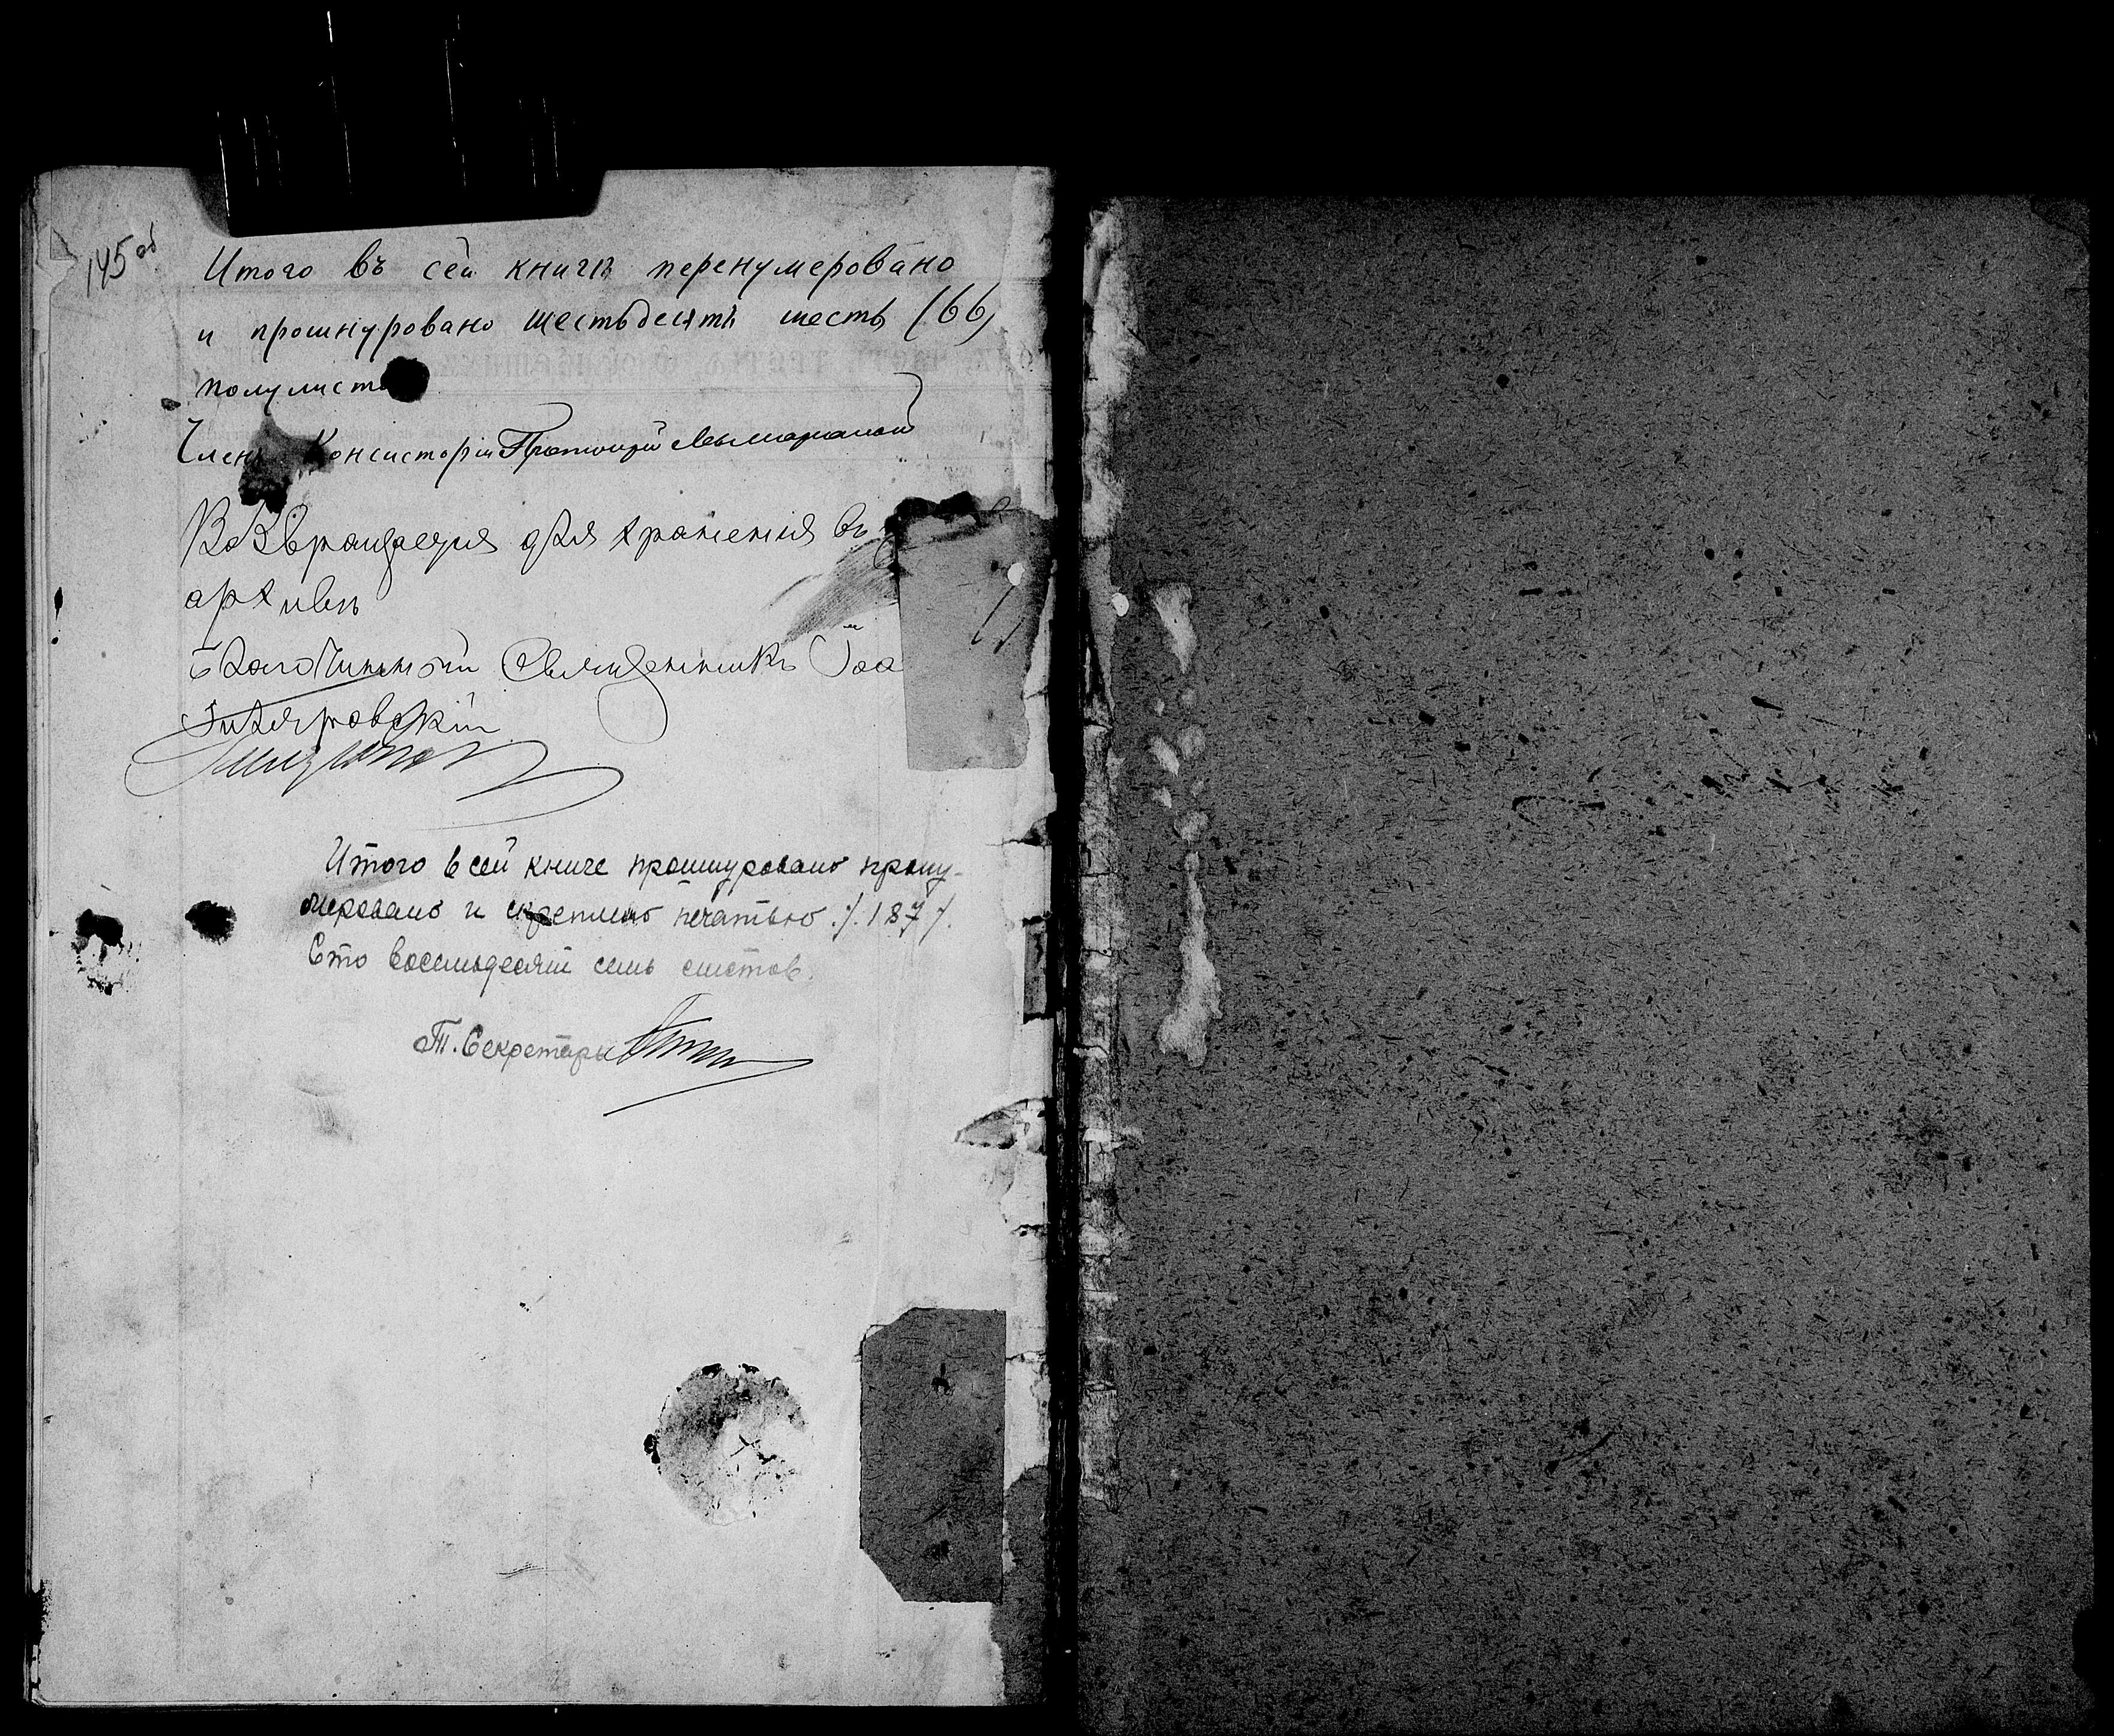 145 об
Итого въ сей книгѣ перенумеровано
и прошнуровано шестьдесятъ шесть (66)
полулисто
Членъ Консисторіи Протоіерей
Возвращается для храненія въ
архивѣ
Благочинный Священникъ Іоа
Гиляровскій
Итого в сей книге прошнуровано прону-
меровано и скреплено печатью ./. 187 ./.
Сто восемьдесят семь листов.
Т. Секретарь